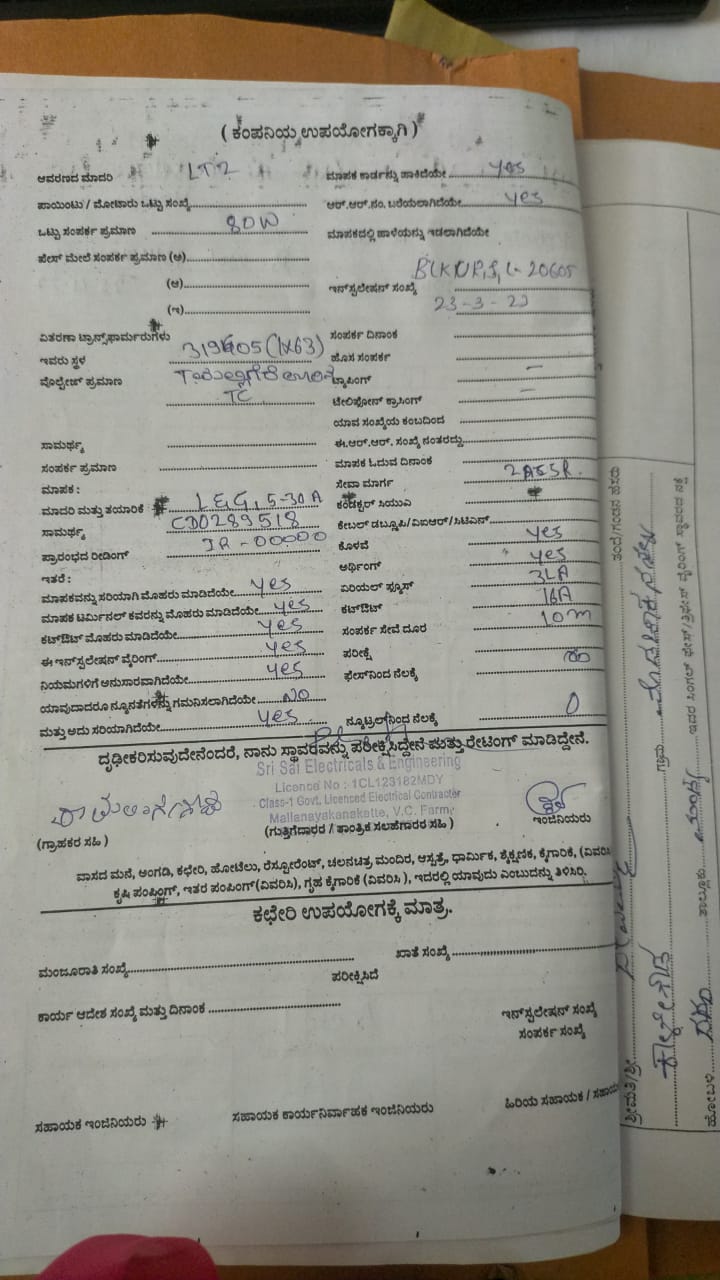 ( ಕಂಪನಿಯ ಉಪಯೋಗಕ್ಕಾಗಿ )
ಆವರಣದ ಮಾದರಿ LT2
ಮಾಪಕ ಕಾರ್ಡನ್ನು ಹಾಕಿದೆಯೇ yes
ಪಾಯಿಂಟು / ಮೋಟಾರು ಒಟ್ಟು ಸಂಖ್ಯೆ
ಆರ್.ಆರ್.ನಂ. ಬರೆಯಲಾಗಿದೆಯೇ yes
ಒಟ್ಟು ಸಂಪರ್ಕ ಪ್ರಮಾಣ 80W
ಮಾಪಕದಲ್ಲಿ ಹಾಳೆಯನ್ನು ಇಡಲಾಗಿದೆಯೇ
ಫೇಸ್ ಮೇಲೆ ಸಂಪರ್ಕ ಪ್ರಮಾಣ (ಅ)
(ಆ)
ಇನ್‌ಸ್ಟಲೇಷನ್ ಸಂಖ್ಯೆ 20605
(ಇ)
23-3-23
ವಿತರಣಾ ಟ್ರಾನ್ಸ್‌ಫಾರ್ಮರುಗಳು
ಸಂಪರ್ಕ ದಿನಾಂಕ
ಇವರು ಸ್ಥಳ (1x63)
ಹೊಸ ಸಂಪರ್ಕ
ವೊಲ್ಟೇಜ್ ಪ್ರಮಾಣ
ಟ್ಯಾಪಿಂಗ್ —
TC
ಟೆಲಿಫೋನ್ ಕ್ರಾಸಿಂಗ್ —
ಯಾವ ಸಂಖ್ಯೆಯ ಕಂಬದಿಂದ
ಸಾಮರ್ಥ್ಯ
ಈ.ಆರ್.ಆರ್. ಸಂಖ್ಯೆ ನಂತರದ್ದು
ಸಂಪರ್ಕ ಪ್ರಮಾಣ
ಮಾಪಕ ಓದುವ ದಿನಾಂಕ
ಮಾಪಕ :
ಸೇವಾ ಮಾರ್ಗ
ಮಾದರಿ ಮತ್ತು ತಯಾರಿಕೆ L&G, 5-30A
ಕಂಡಕ್ಟರ್ ಸಿಯುವಿ
ಸಾಮರ್ಥ್ಯ CD0289518
ಕೇಬಲ್ ಡಬ್ಲೂಪಿ/ವಿಐಆರ್/ಸಿಟಿಎಸ್
ಪ್ರಾರಂಭದ ರೀಡಿಂಗ್ IR-00000
ಕೊಳವೆ yes
ಇತರೆ :
ಅರ್ಥಿಂಗ್ yes
ಮಾಪಕವನ್ನು ಸರಿಯಾಗಿ ಮೊಹರು ಮಾಡಿದೆಯೇ yes
ಏರಿಯಲ್ ಫ್ಯೂಸ್
ಮಾಪಕ ಟರ್ಮಿನಲ್ ಕವರನ್ನು ಮೊಹರು ಮಾಡಿದೆಯೇ yes
ಕಟ್‌ಔಟ್ 16A
ಕಟ್‌ಔಟ್ ಮೊಹರು ಮಾಡಿದೆಯೇ yes
ಸಂಪರ್ಕ ಸೇವೆ ದೂರ 10m
ಈ ಇನ್‌ಸ್ಟಲೇಷನ್ ವೈರಿಂಗ್ yes
ಪರೀಕ್ಷೆ
ನಿಯಮಗಳಿಗೆ ಅನುಸಾರವಾಗಿದೆಯೇ yes
ಫೇಸ್‌ನಿಂದ ನೆಲಕ್ಕೆ ∞
ಯಾವುದಾದರೂ ನ್ಯೂನತೆಗಳನ್ನು ಗಮನಿಸಲಾಗಿದೆಯೇ NO
ಮತ್ತು ಅದು ಸರಿಯಾಗಿದೆಯೇ yes
ನ್ಯೂಟ್ರಲ್‌ನಿಂದ ನೆಲಕ್ಕೆ 0
ದೃಢೀಕರಿಸುವುದೇನೆಂದರೆ, ನಾನು ಸ್ಥಾವರವನ್ನು ಪರೀಕ್ಷಿಸಿದ್ದೇನೆ ಮತ್ತು ರೇಟಿಂಗ್ ಮಾಡಿದ್ದೇನೆ.
Sri Sai Electricals & Engineering
Licence No : 1CL123182MDY
Class-1 Govt. Licenced Electrical Contractor
Mallanayakanakatte, V.C. Farm
(ಗ್ರಾಹಕರ ಸಹಿ )
(ಗುತ್ತಿಗೆದಾರರ / ತಾಂತ್ರಿಕ ಸಲಹೆಗಾರರ ಸಹಿ )
ಇಂಜಿನಿಯರು
ವಾಸದ ಮನೆ, ಅಂಗಡಿ, ಕಛೇರಿ, ಹೋಟೆಲು, ರೆಸ್ಟೋರೆಂಟ್, ಚಲನಚಿತ್ರ ಮಂದಿರ, ಆಸ್ಪತ್ರೆ, ಧಾರ್ಮಿಕ, ಶೈಕ್ಷಣಿಕ, ಕೈಗಾರಿಕೆ, (ವಿವರಿಸಿ
ಕೃಷಿ ಪಂಪಿಂಗ್, ಇತರ ಪಂಪಿಂಗ್ (ವಿವರಿಸಿ), ಗೃಹ ಕೈಗಾರಿಕೆ (ವಿವರಿಸಿ ), ಇದರಲ್ಲಿ ಯಾವುದು ಎಂಬುದನ್ನು ತಿಳಿಸಿರಿ.
ಕಛೇರಿ ಉಪಯೋಗಕ್ಕೆ ಮಾತ್ರ.
ಮಂಜೂರಾತಿ ಸಂಖ್ಯೆ
ಖಾತೆ ಸಂಖ್ಯೆ
ಪರೀಕ್ಷಿಸಿದೆ
ಕಾರ್ಯ ಆದೇಶ ಸಂಖ್ಯೆ ಮತ್ತು ದಿನಾಂಕ
ಇನ್‌ಸ್ಟಲೇಷನ್ ಸಂಖ್ಯೆ
ಸಂಪರ್ಕ ಸಂಖ್ಯೆ
ಸಹಾಯಕ ಇಂಜಿನಿಯರು
ಸಹಾಯಕ ಕಾರ್ಯನಿರ್ವಾಹಕ ಇಂಜಿನಿಯರು
ಹಿರಿಯ ಸಹಾಯಕ /
ಶ್ರೀಮತಿ/ಶ್ರೀ
ತಂದೆ/ಗಂಡನ ಹೆಸರು
ಗ್ರಾಮ
ಹೋಬಳಿ
ತಾಲ್ಲೂಕು
ಇದರ ಸಿಂಗಲ್ ಫೇಸ್/ತ್ರಿಫೇಸ್ ವೈರಿಂಗ್ ಸ್ಥಾವರದ ನಕ್ಷೆ